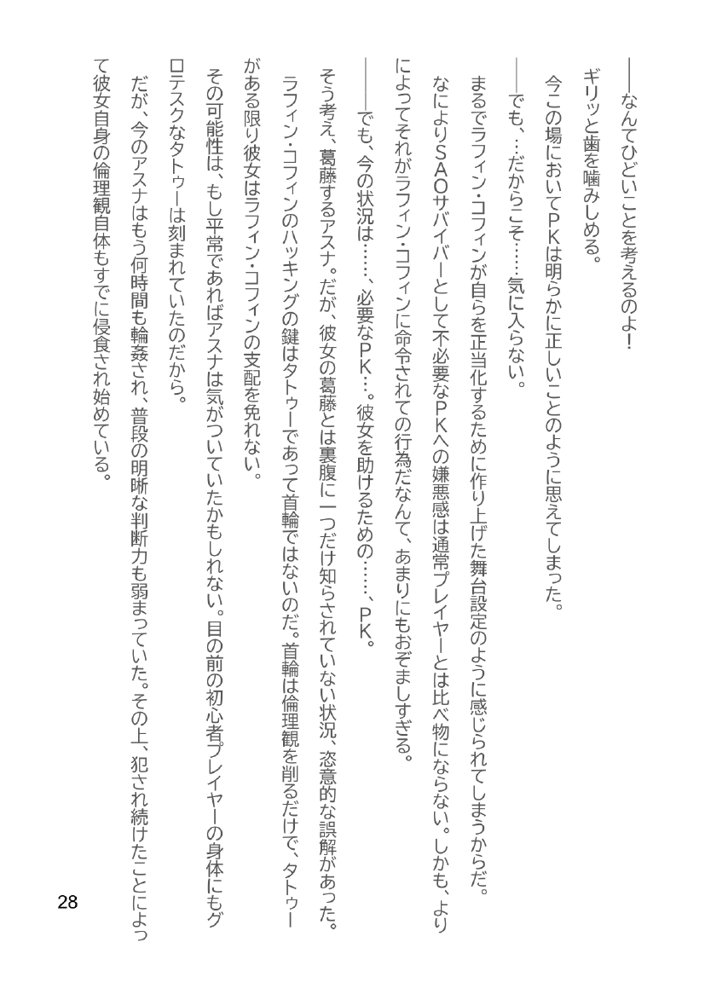 ――なんてひどいことを考えるのよ！
ギリッと歯を噛みしめる。
今この場においてＰＫは明らかに正しいことのように思えてしまった。
――でも、…だからこそ……気に入らない。
まるでラフィン・コフィンが自らを正当化するために作り上げた舞台設定のように感じられてしまうからだ。
なによりＳＡＯサバイバーとして不必要なＰＫへの嫌悪感は通常プレイヤーとは比べ物にならない。しかも、より
によってそれがラフィン・コフィンに命令されての行為だなんて、あまりにもおぞましすぎる。
――でも、今の状況は……、必要なＰＫ…。彼女を助けるための……、ＰＫ。
そう考え、葛藤するアスナ。だが、彼女の葛藤とは裏腹に一つだけ知らされていない状況、恣意的な誤解があった。
ラフィン・コフィンのハッキングの鍵はタトゥーであって首輪ではないのだ。首輪は倫理観を削るだけで、タトゥー
がある限り彼女はラフィン・コフィンの支配を免れない。
その可能性は、もし平常であればアスナは気がついていたかもしれない。目の前の初心者プレイヤーの身体にもグ
ロテスクなタトゥーは刻まれていたのだから。
だが、今のアスナはもう何時間も輪姦され、普段の明晰な判断力も弱まっていた。その上、犯され続けたことによっ
て彼女自身の倫理観自体もすでに侵食され始めている。
28